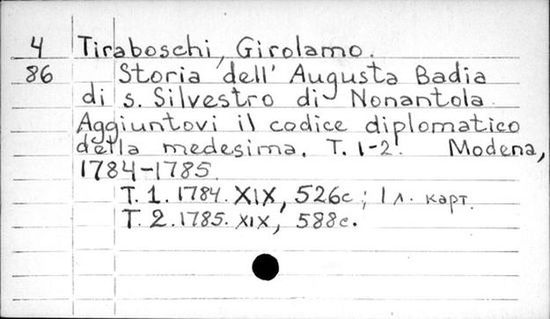 4 Tiraboschi, Girolamo.
86 Storia dell' Augusta Badia
di s. Silvestro di Nonantola.
Aggiuntovi il codice diplomatico
della medesima. T. 1-2. Modena,
1784-1785.
T. 1. 1784. XIX, 526с; 1 л. карт.
T. 2. 1785. XIX, 588с.